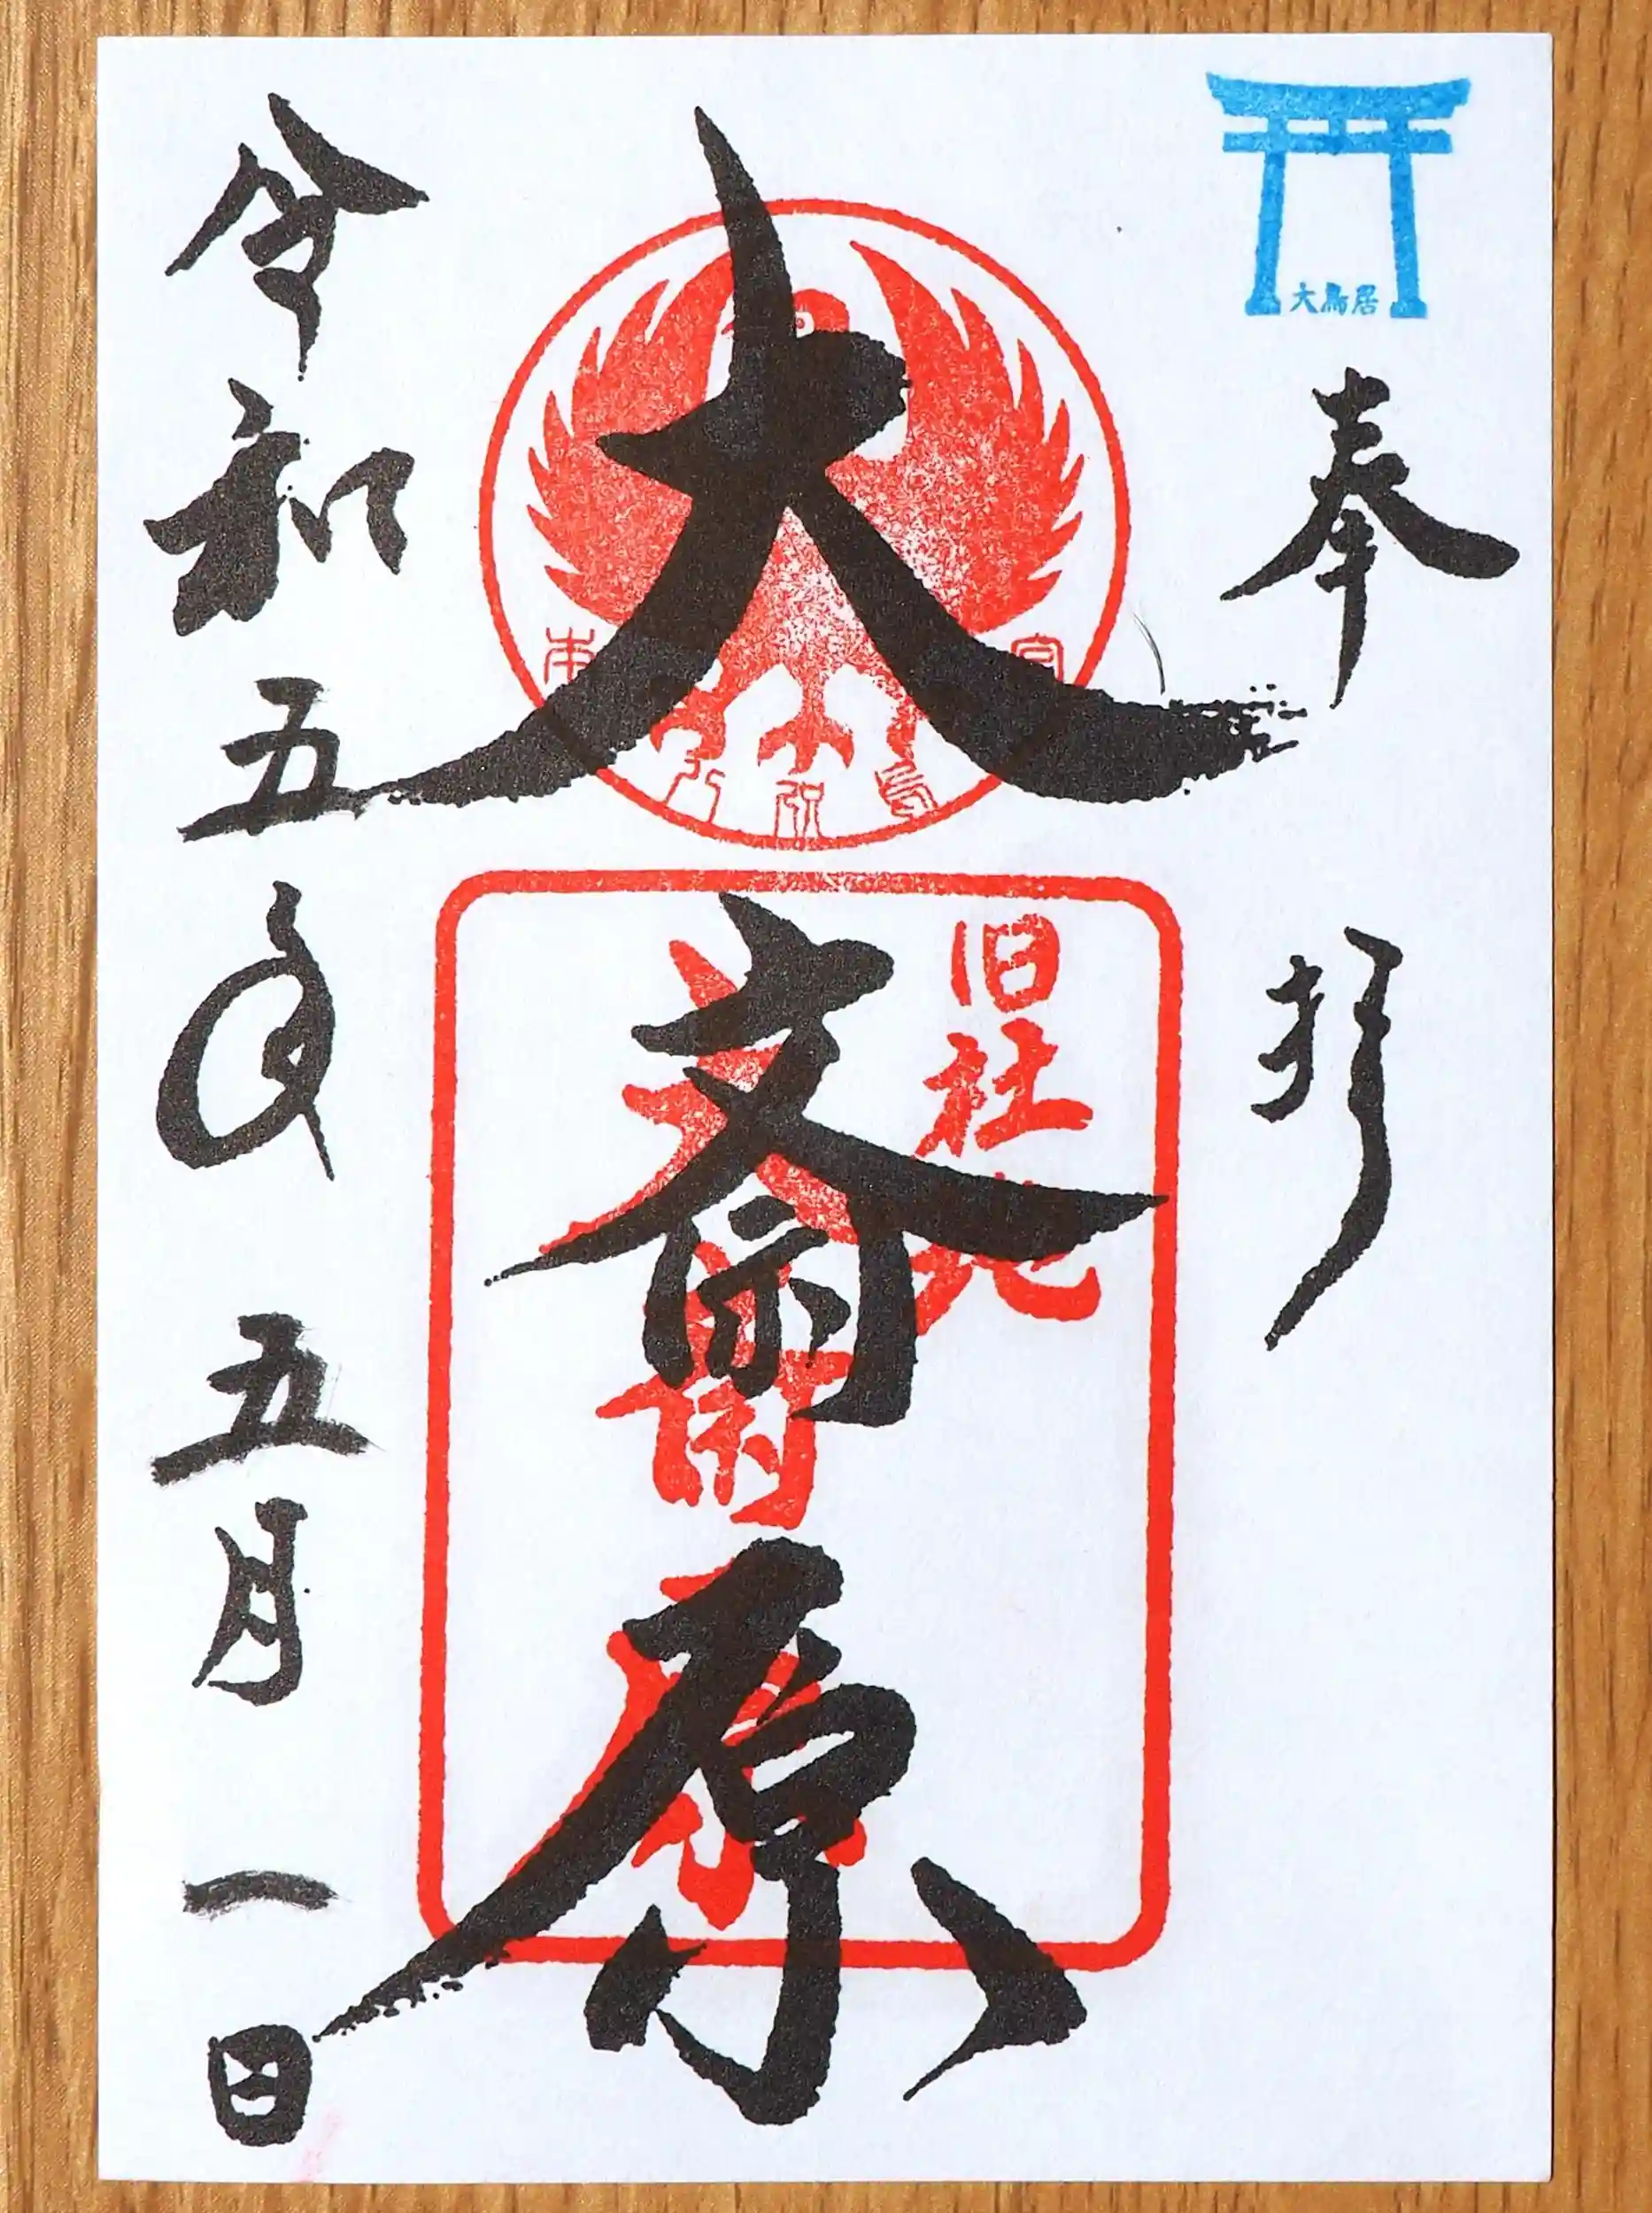 大鳥居
奉拝
大斎原
旧社地
斎原
令和五年 五月一日